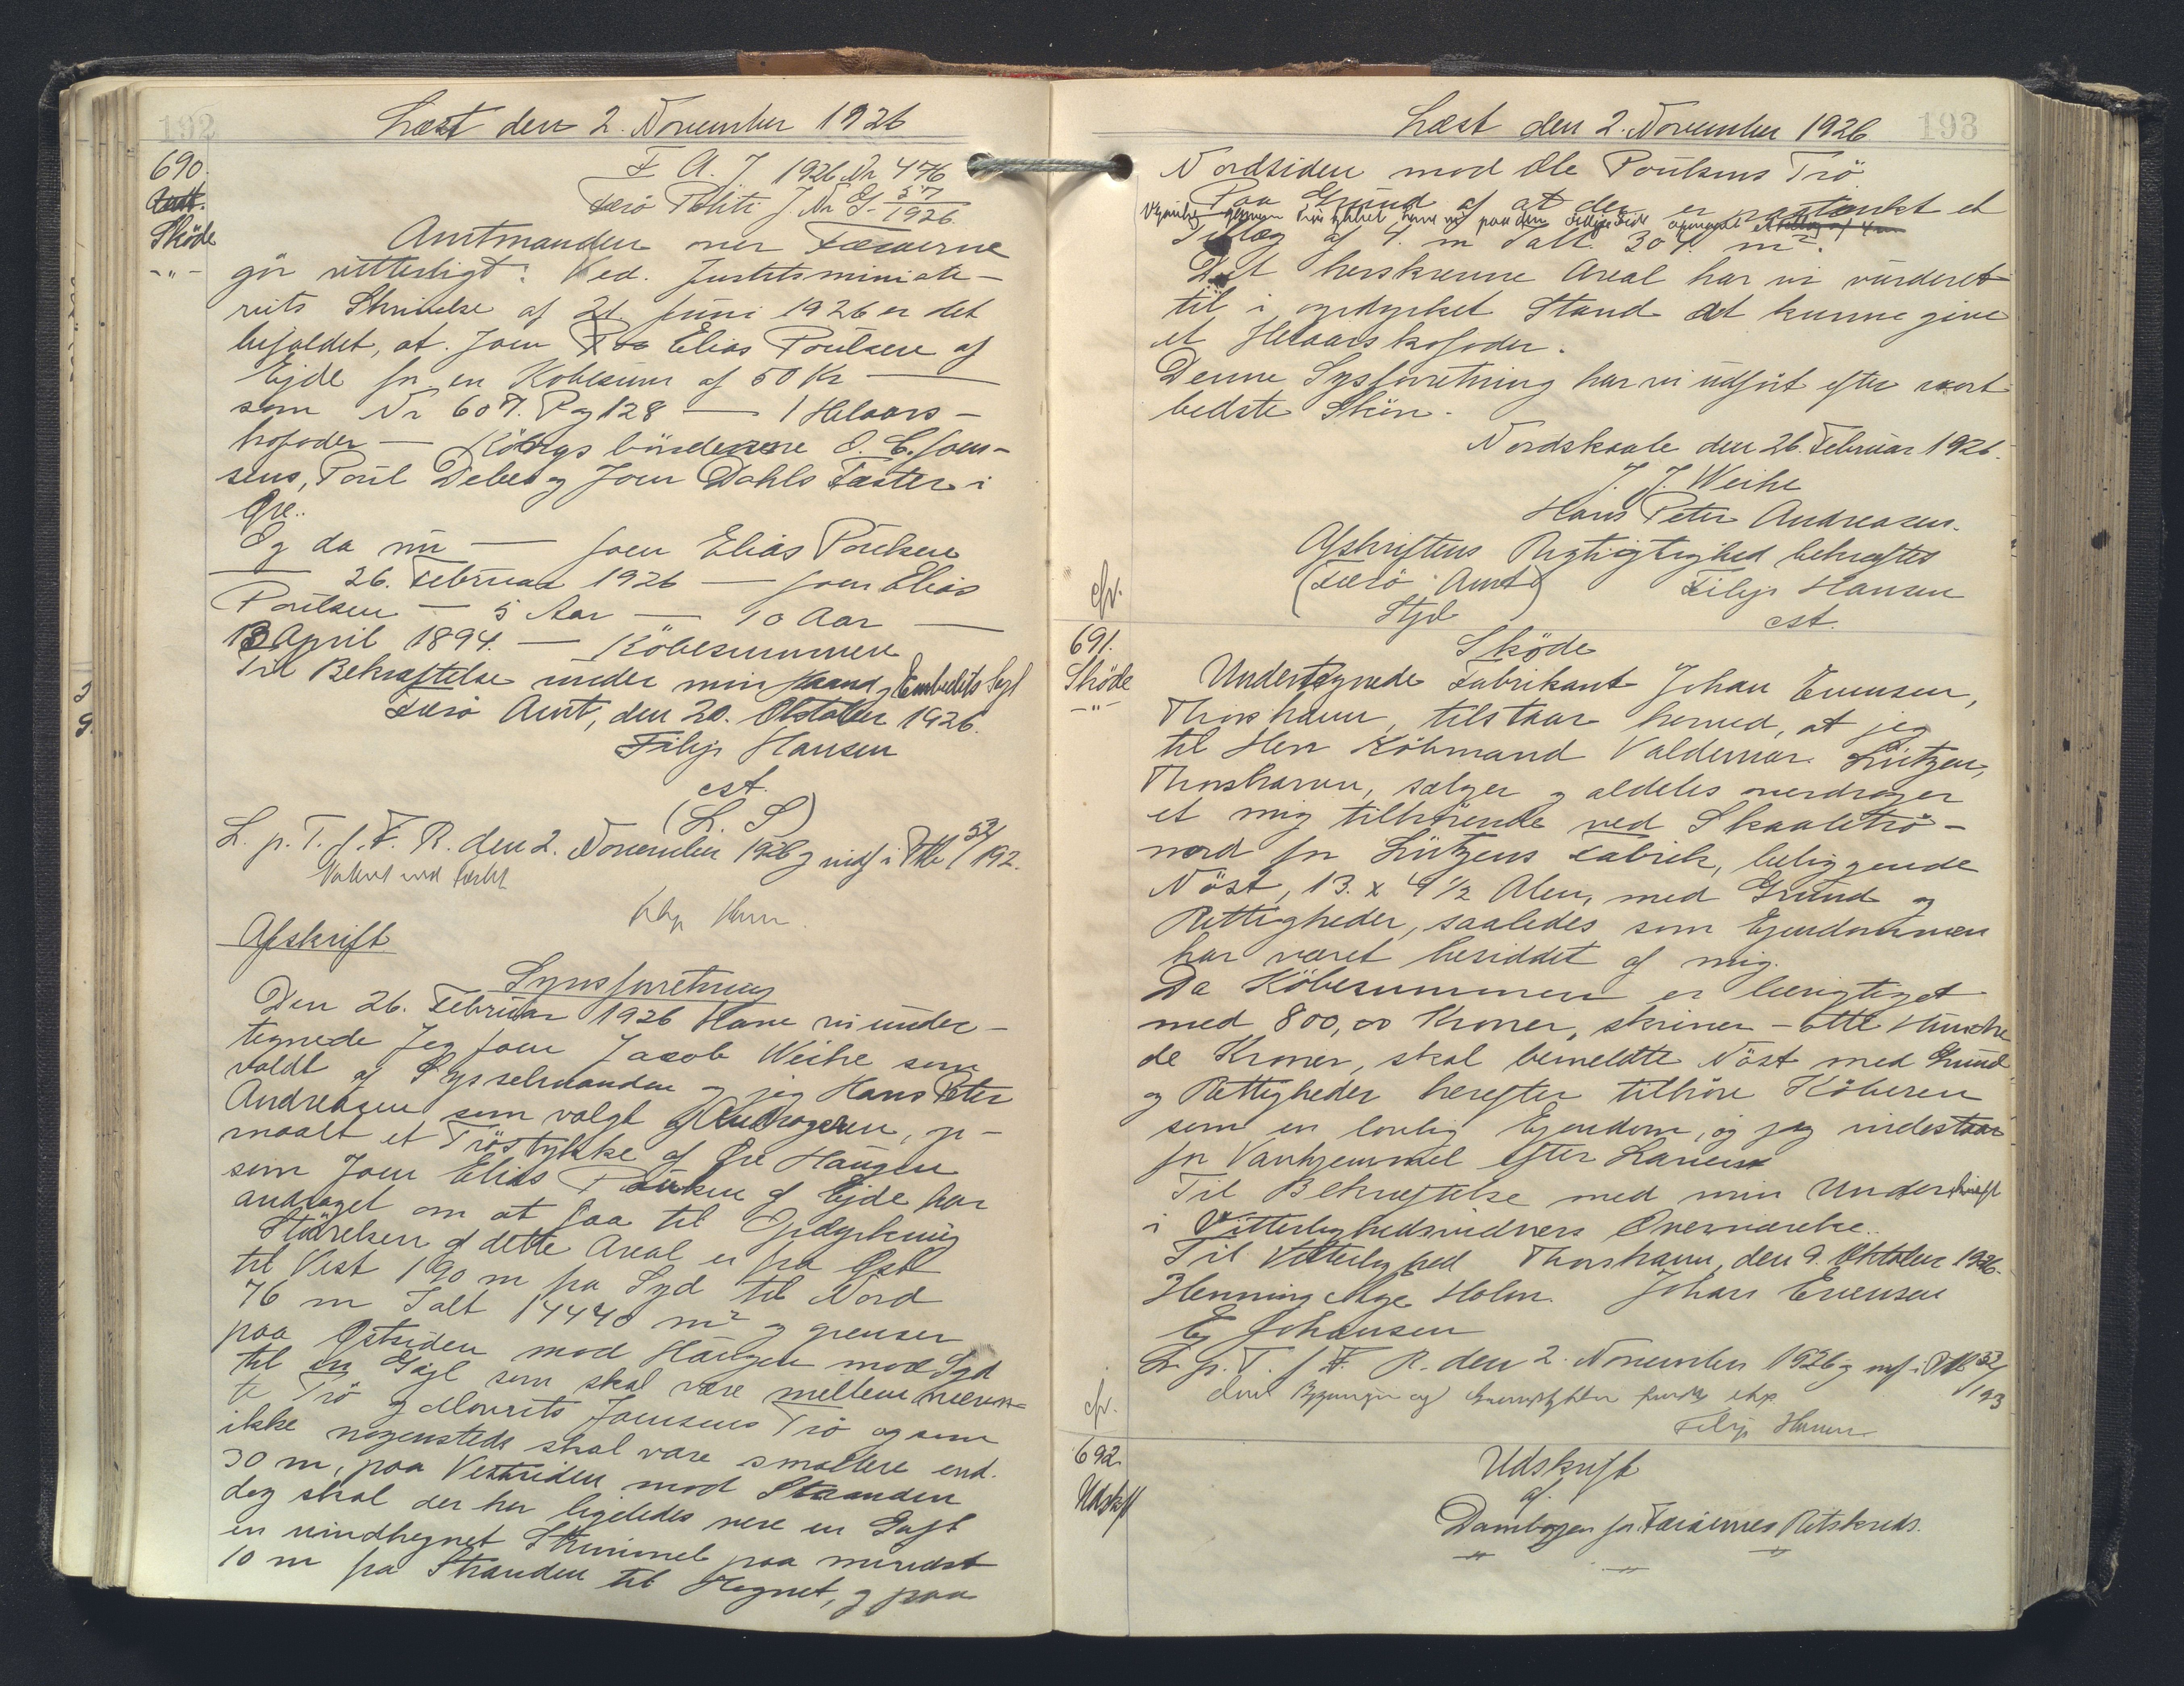 192
Læst den 2. November 1926
690.
Sköde
-"-
F. A. J 1926 Nr 476
Færö Politi J. Nr G- 57/1926
Amtmanden over Færöerne
gör vitterligt: Ved Justitsministe-
riets Skrivelse af 21 Juni 1926 er det
bifaldet, at Joen Elias Poulsen af
Ejde for en Köbesum af 50 Kr —
som Nr 607. Pag 128 — 1 Helaars-
kofoder — Kongsbönderne J. C. Joen-
sens, Poul Debes og Joen Dahls Fæster i
Gre..
Og da nu — Joen Elias Poulsen
— 26. Februar 1926 — Joen Elias
Poulsen — 5 Aar — 10 Aar —
13 April 1894. — Köbesummen
Til Bekræftelse under min Haand og Embedets Segl
Færö Amt, den 20. Oktober 1926.
Filip Hansen
cst.
(L. S)
L. p. T. f. F. R. den 2. November 1926 og indf i Ptb 32/192.
Afskrift
Synsforretning
Den 26. Februar 1926 Have vi under-
tegnede Jeg Joen Jacob Weihe som
valdt af Sysselmanden og jeg Hans Peter
Andreasen som valgt af Andrageren, op-
maalt et Tröstykke af Gre Haugen
som Joen Elias Poulsen af Ejde har
andraget om at faa til Opdyrkning
Störrelsen af dette Areal er fra Öst
til Vest 190 m fra Syd til Nord
76 m Ialt 14440 m² og grenser
paa Östsiden mod Haugen mod Syd
til en Gejl som skal være mellem heeromh-
te Trö og Mourits Joensens Trö og som
ikke nogensteds skal være smallere end
30 m, paa Vestsiden mod Stranden
dog skal der her ligeledes være en Gejl
en uindhegnet Strimmel paa mindst
10 m fra Stranden til Hegnet, og paa
193
Læst den 2. November 1926
Nordsiden mod Ole Poulsens Trö
Paa Grund af at der er paatænkt et
Tillæg af 4. m Ialt 304 m².
Det herskrevne Areal har vi vurderet
til i opdyrket Stand at kunne give
et Helaarskofoder.
Denne Synsforretning har vi udfört efter vort
bedste Skön.
Nordskaale den 26. Februar 1926.
J. J. Weihe
Hans Peter Andreasen.
Afskriftens Rigtigtighed bekræftes
(Færö Amt) Filip Hansen
Stpl cst.
691.
Sköde
-"-
Sköde
Undertegnede Fabrikant Johan Evensen,
Thorshavn, tilstaar herved, at jeg
til Herr Köbmand Valdemar Lützen,
Thorshavn, sælger og aldeles overdrager
et mig tilhörende ved Skaaletrö-
nord for Lützens Fabrik, beliggende
Nöst, 13. x 9 1/2 Alen, med Grund og
Rettigheder, saaledes som Ejendommen
har været besiddet af mig.
Da Köbesummen er berigtiget
med 800,00 Kroner, skriver - Otte Hundre
de Kroner, skal bemeldte Nöst med Grund
og Rettigheder herefter tilhöre Köberen
som en lovlig Ejendom, og jeg indestaar
for Vanhjemmel efter Loven
Til Bekræftelse med min Underskrift
i Vitterlighedsvidners Overværelse..
Til Vitterlighed Thorshavn, den 9. Oktober 1926.
Henning Aage Holm. Johan Evensen
Ej Johansen
L. p. T. f F. R. den 2. November 1926 og indf i Ptb 32/193
Filip Hansen
692.
Udskrift
Udskrift
af
Dombogen for Færöernes Retskreds.